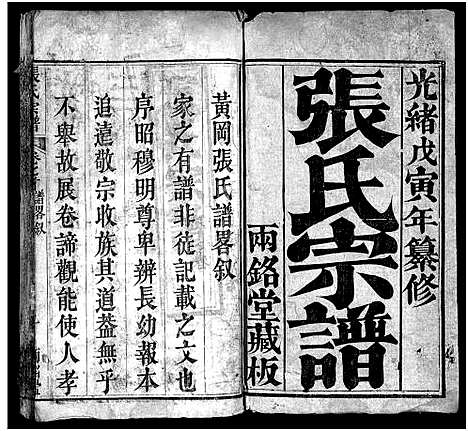 光緒戊寅年纂修
張氏宗譜
兩銘堂藏板
黃岡張氏譜畧叙
家之有譜非徒記載之文也
序昭穆明尊卑辨長幼報本
追遠敬宗收族其道葢無乎
不舉故展卷諦觀能使人孝
張氏宗譜
譜畧叙